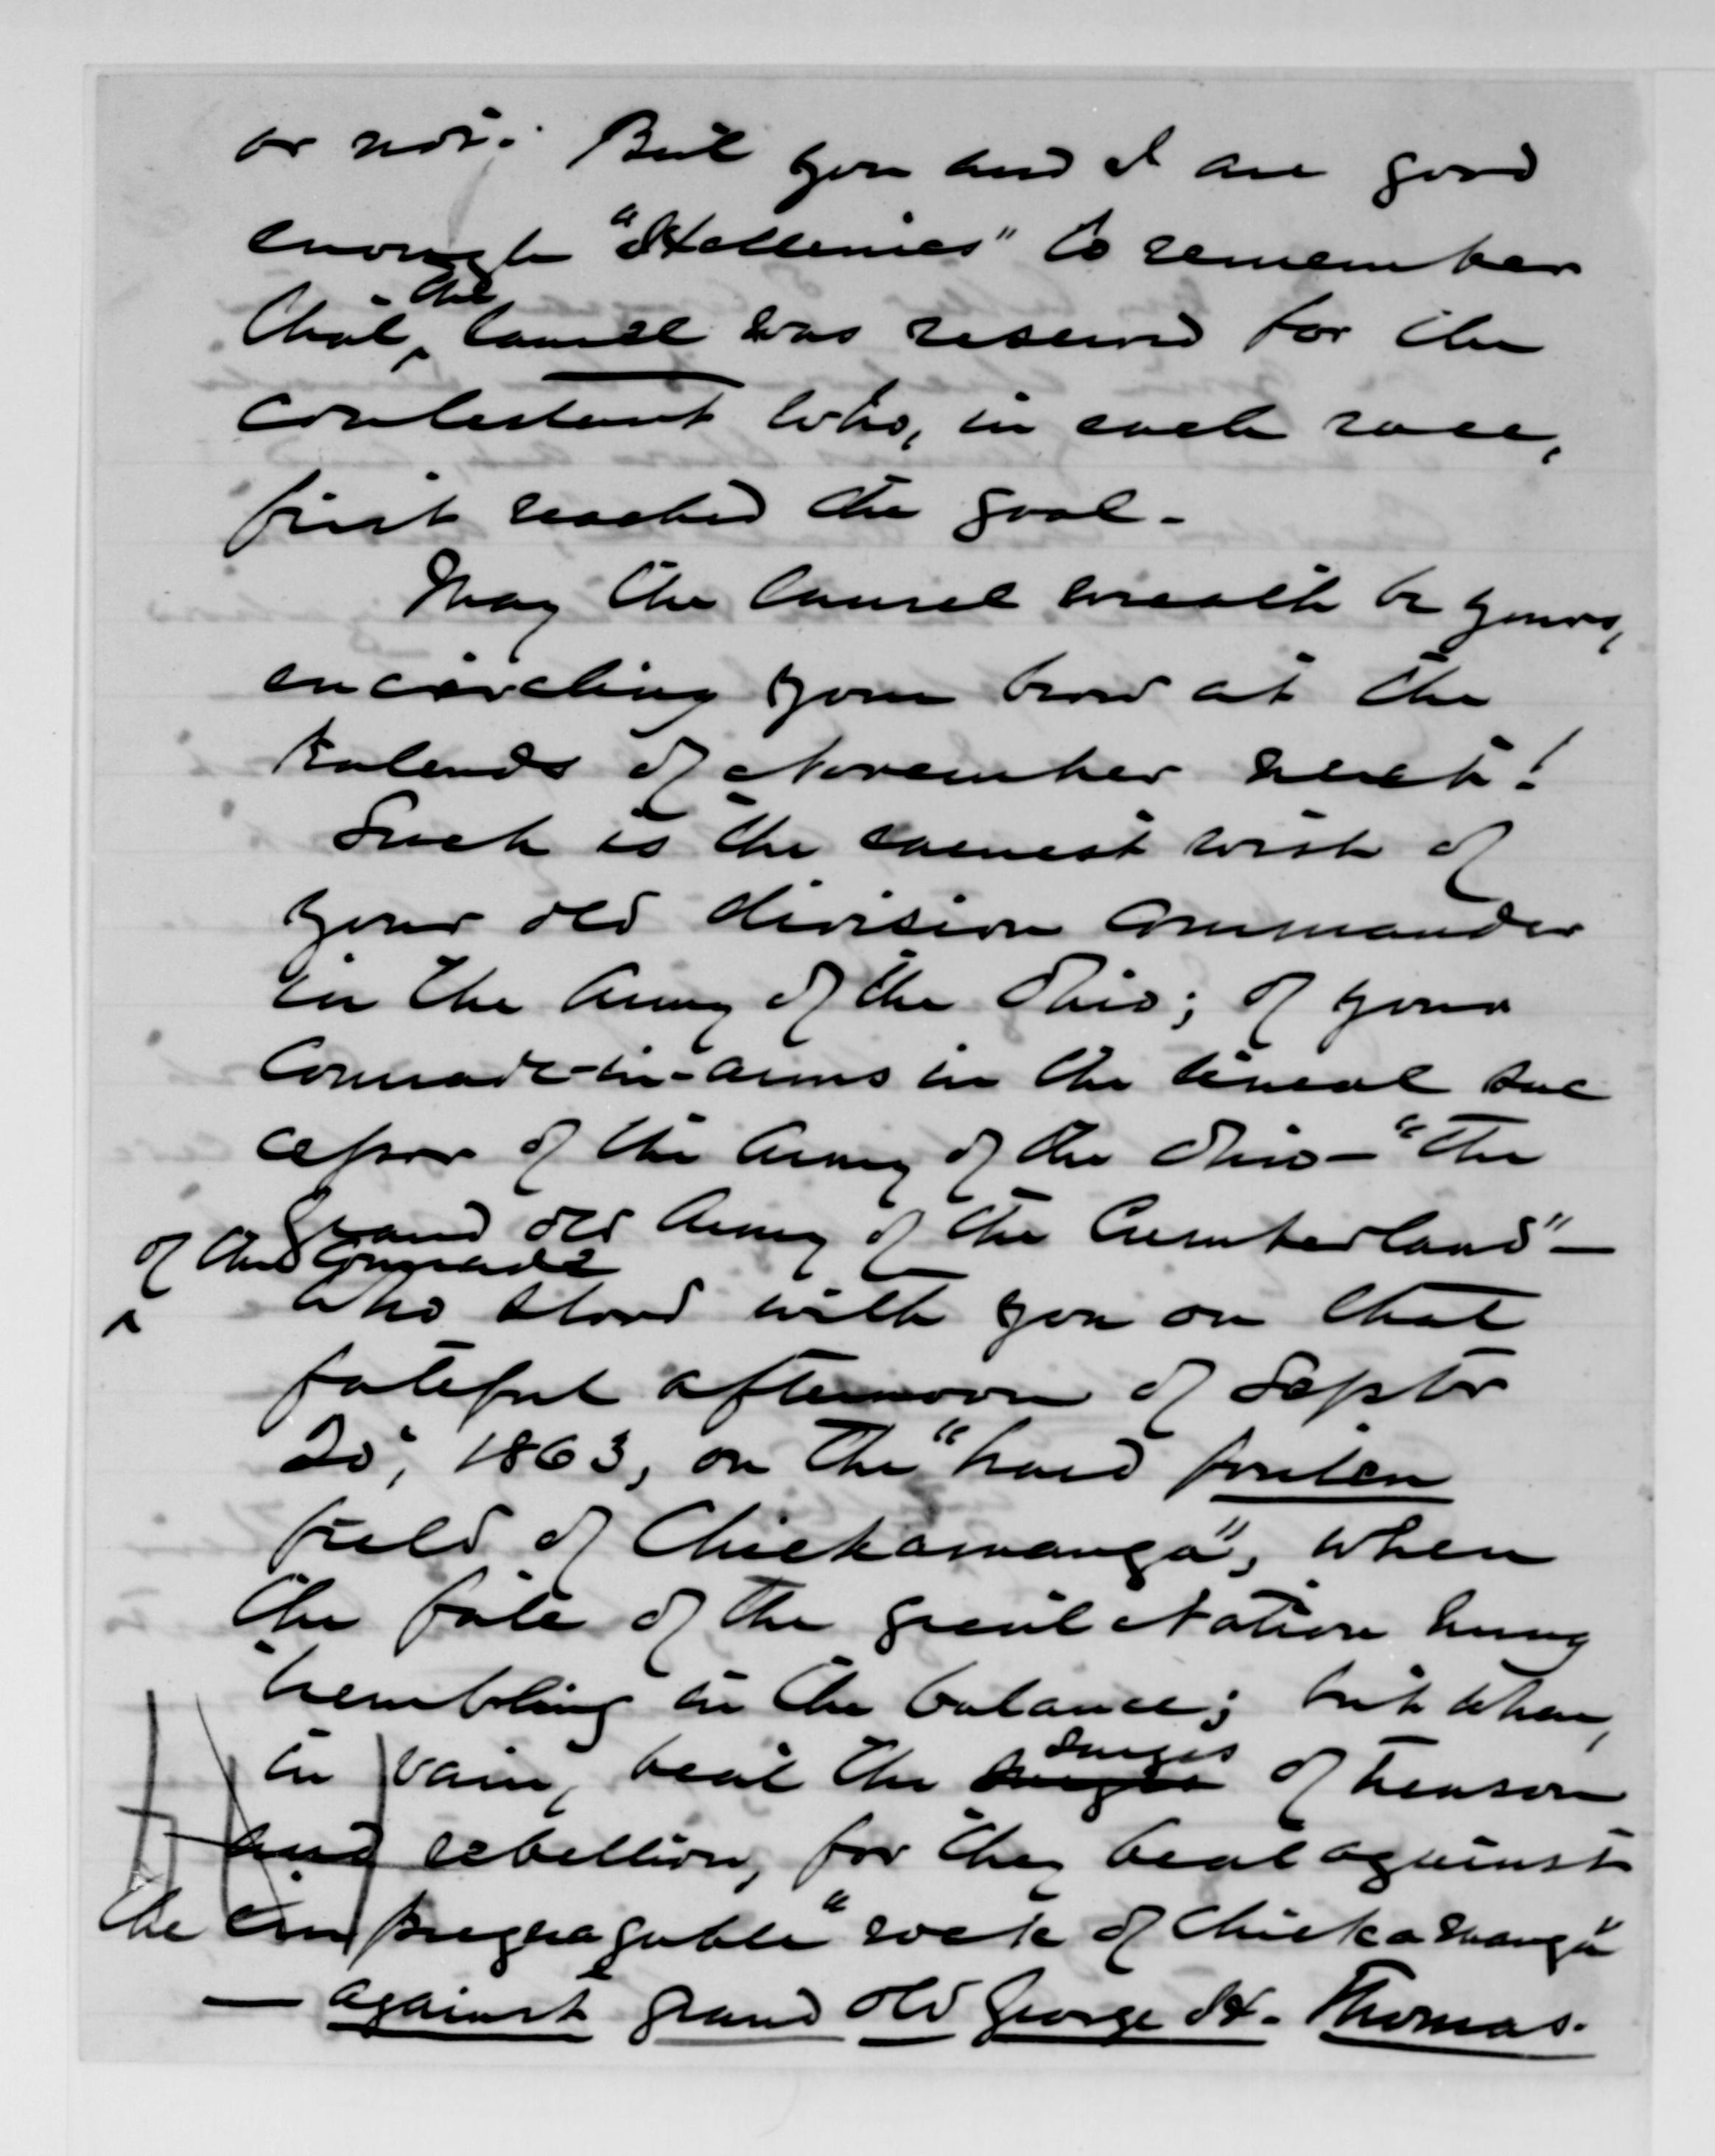 or not. But you and I are good
enough "Hellenics" to remember
that, the laurel was reserved for the
contestant who, in each race,
first reached the goal.
May the laurel wreath be yours,
encircling your brow at the
Kalends of November next!
Such is the earnest wish of
your old division commander
in the Army of the Ohio; of your
Comrade-in-arms in the lineal suc
cessor of the Army of the Ohio—"The
Grand old Army of the Cumberland"—
of the Comrade
who stood with you on that
fateful afternoon of Septbr
20", 1863, on the "hard fouten
field of Chickamauga", when
the fate of the great Nation hung
trembling in the balance; but when,
in vain, beat the surges surges of treason
and rebellion, for they beat against
the impregnagable "rock of Chickamauga"
— against grand old George H. Thomas.